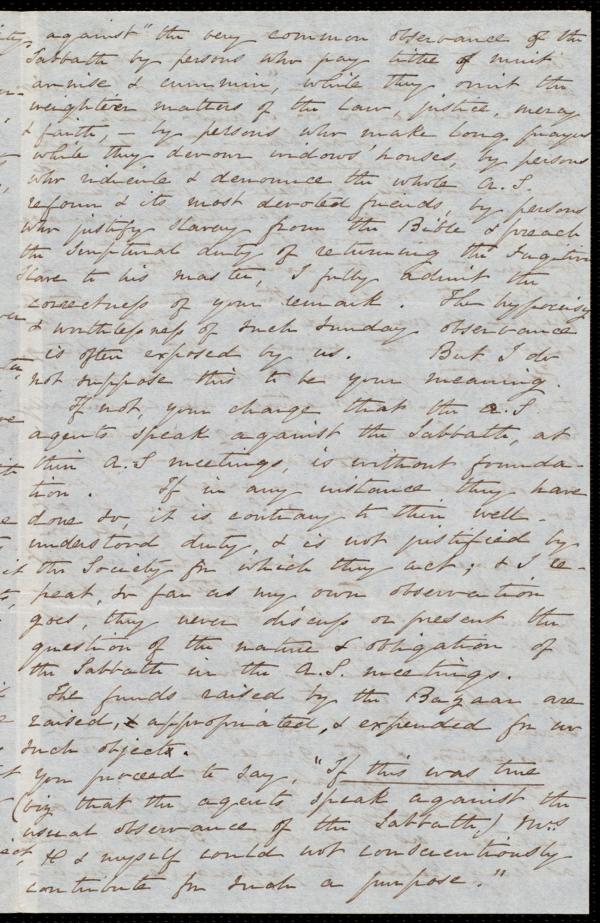 against "the very common observance of the
Sabbath by persons who pay tithe of mint
annise & cummin, while they omit the
weightier matters of the Law, justice, mercy
& faith, – by persons who make long prayers
while they devour widows' houses, by persons
who ridicule & denounce the whole A. S.
reform & its most devoted friends, by persons
who justify slavery from the Bible & preach
the Scriptural duty of returning the Fugitive
Slave to his master, I fully admit the
correctness of your remark. The hypocrisy
& worthlessness of such Sunday observance
is often exposed by us. But I do
not suppose this to be your meaning.
If not, your charge that the A. S
agents speak against the Sabbath, at
their A. S meetings, is without founda-
tion. If in any instance they have
done so, it is contrary to their well-
understood duty, & is not justified by
the Society for which they act; & I re-
peat, so far as my own observation
goes, they never discuss or present the
question of the nature & obligation of
the Sabbath in the A. S. meetings.
The funds raised by the Bazaar are
raised, & appropriated, & expended for no
such objects.
You proceed to say, "If this was true
(viz that the agents speak against the
usual observance of the Sabbath) Mrs
H & myself could not conscientiously
contribute for such a purpose."